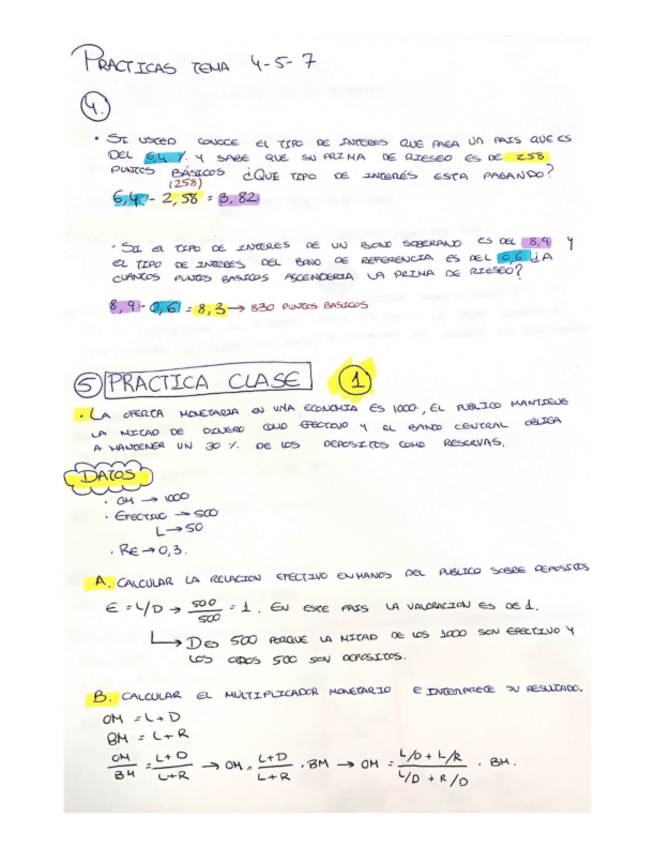 PRACTICAS TEMA 4-5-7
4.
• SI USTED CONOCE EL TIPO DE INTERES QUE PAGA UN PAIS QUE ES
DEL 6,4 % Y SABE QUE SU PRIMA DE RIESGO ES DE 258
PUNTOS BÁSICOS ¿QUE TIPO DE INTERÉS ESTA PAGANDO?
(258)
6,4 - 2,58 = 3,82
• SI EL TIPO DE INTERES DE UN BONO SOBERANO ES DEL 8,9 Y
EL TIPO DE INTERES DEL BONO DE REFERENCIA ES DEL 0,6 ¿A
CUANTOS PUNTOS BASICOS ASCENDERIA LA PRIMA DE RIESGO?
8,9 - 0,6 = 8,3 → 830 PUNTOS BASICOS
5 PRACTICA CLASE 1
• LA OFERTA MONETARIA EN UNA ECONOMIA ES 1000, EL PUBLICO MANTIENE
LA MITAD DE DINERO COMO EFECTIVO Y EL BANCO CENTRAL OBLIGA
A MANTENER UN 30 % DE LOS DEPOSITOS COMO RESERVAS.
DATOS
• OM → 1000
• EFECTIVO → 500
L → 50
• RE → 0,3.
A. CALCULAR LA RELACION EFECTIVO EN MANOS DEL PUBLICO SOBRE DEPOSITOS
E = L/D → 500/500 = 1. EN ESTE PAIS LA VALORACION ES DE 1.
↳ D es 500 PORQUE LA MITAD DE LOS 1000 SON EFECTIVO Y
LOS OTROS 500 SON DEPOSITOS.
B. CALCULAR EL MULTIPLICADOR MONETARIO E INTERPRETE SU RESULTADO.
OM = L + D
BM = L + R
OM/BM = L+D/L+R → OM = L+D/L+R · BM → OM = L/D + L/R / L/D + R/D · BM.